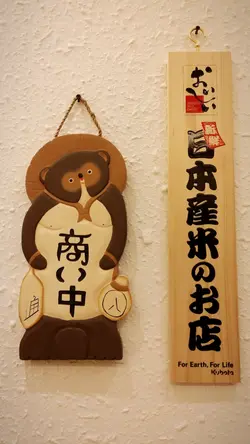 商い中
通
八
おいしい
新鮮
日本産米のお店
For Earth, For Life
Kubota